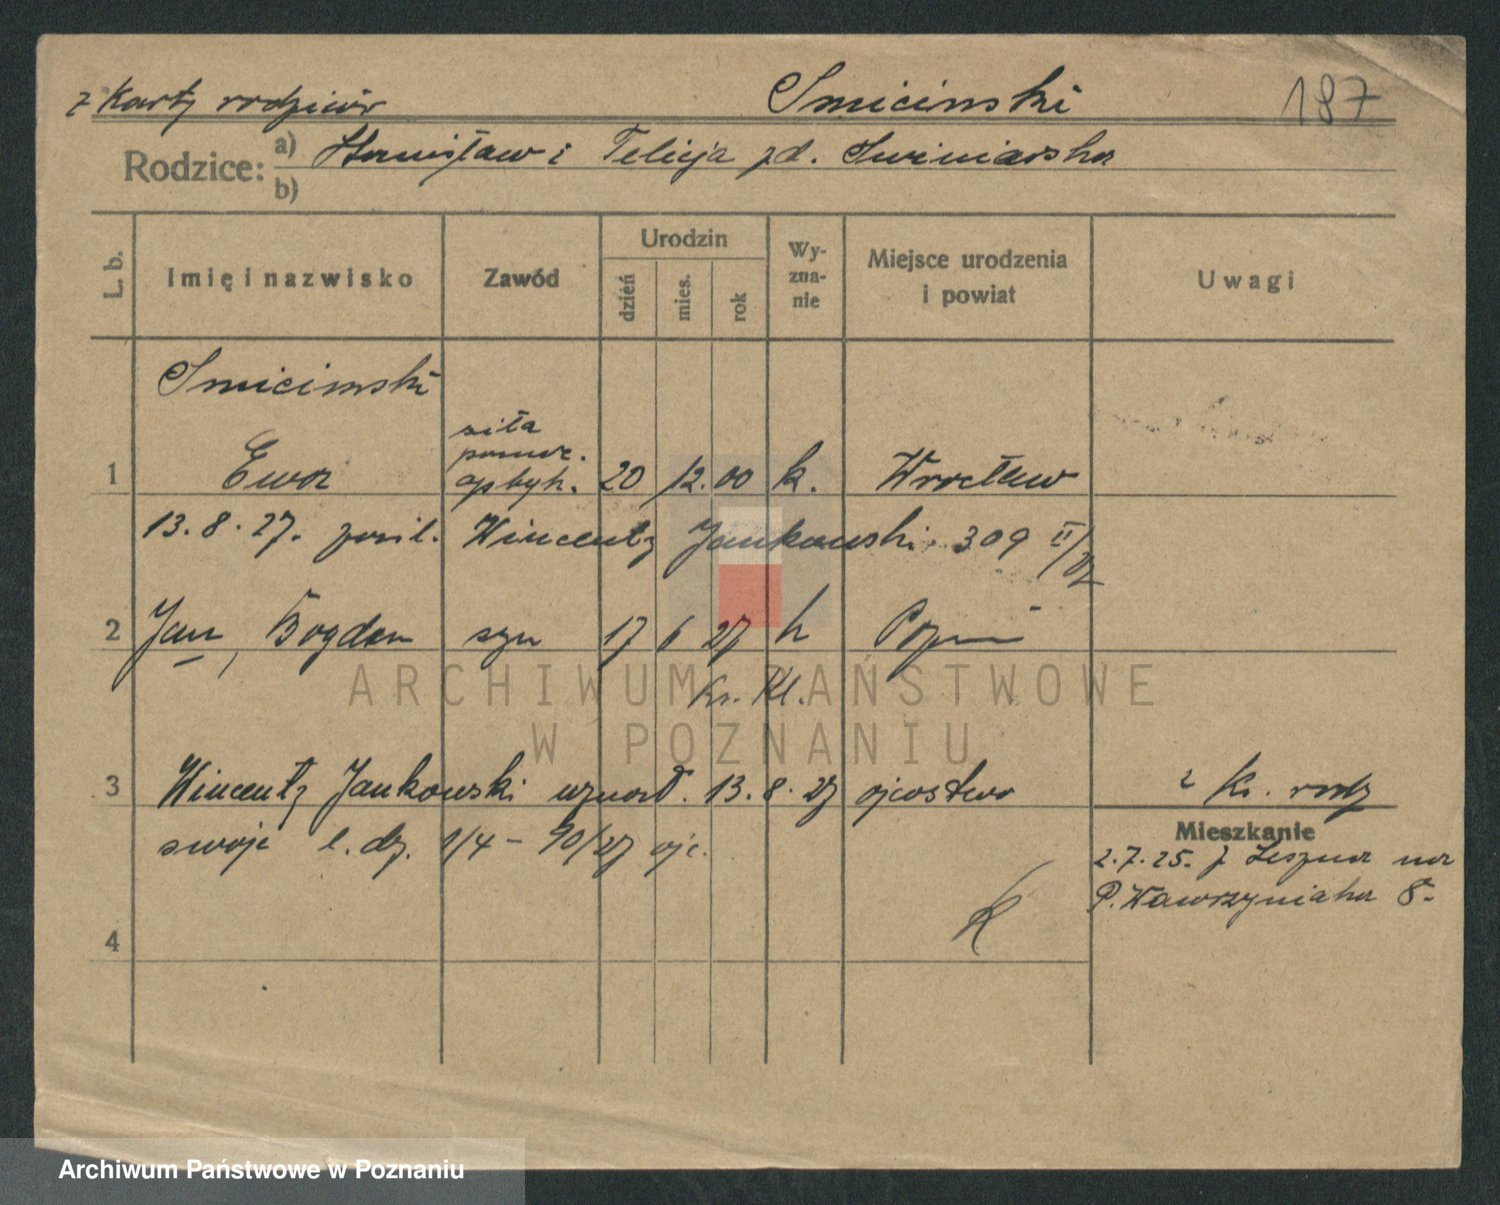 z Karty rodziców Smiciński 187
Rodzice: a) Stanisław i Felicja zd. Świniarska
b)
L. b. Imię i nazwisko Zawód Urodzin dzień mies. rok Wy-zna-nie Miejsce urodzenia i powiat Uwagi
Smiciński
siła
pomoc.
1 Ewa aptyk. 20 12. 00 k. Wrocław
13. 8. 27. pośl. Wincenty Jankowski 309 II/27
2 Jan, Bogdan syn 17 6 27 k
Kr. Kl.
3 Wincenty Jankowski uznał. 13. 8. 27 ojcostwo z K. rodz
swoje l. dz. 1/4 - 90/27 ojc.
Mieszkanie
2.7.25. z Leszna na
P. Wawrzyniaka 8.
K
4
ARCHIWUM PAŃSTWOWE
W POZNANIU
Archiwum Państwowe w Poznaniu